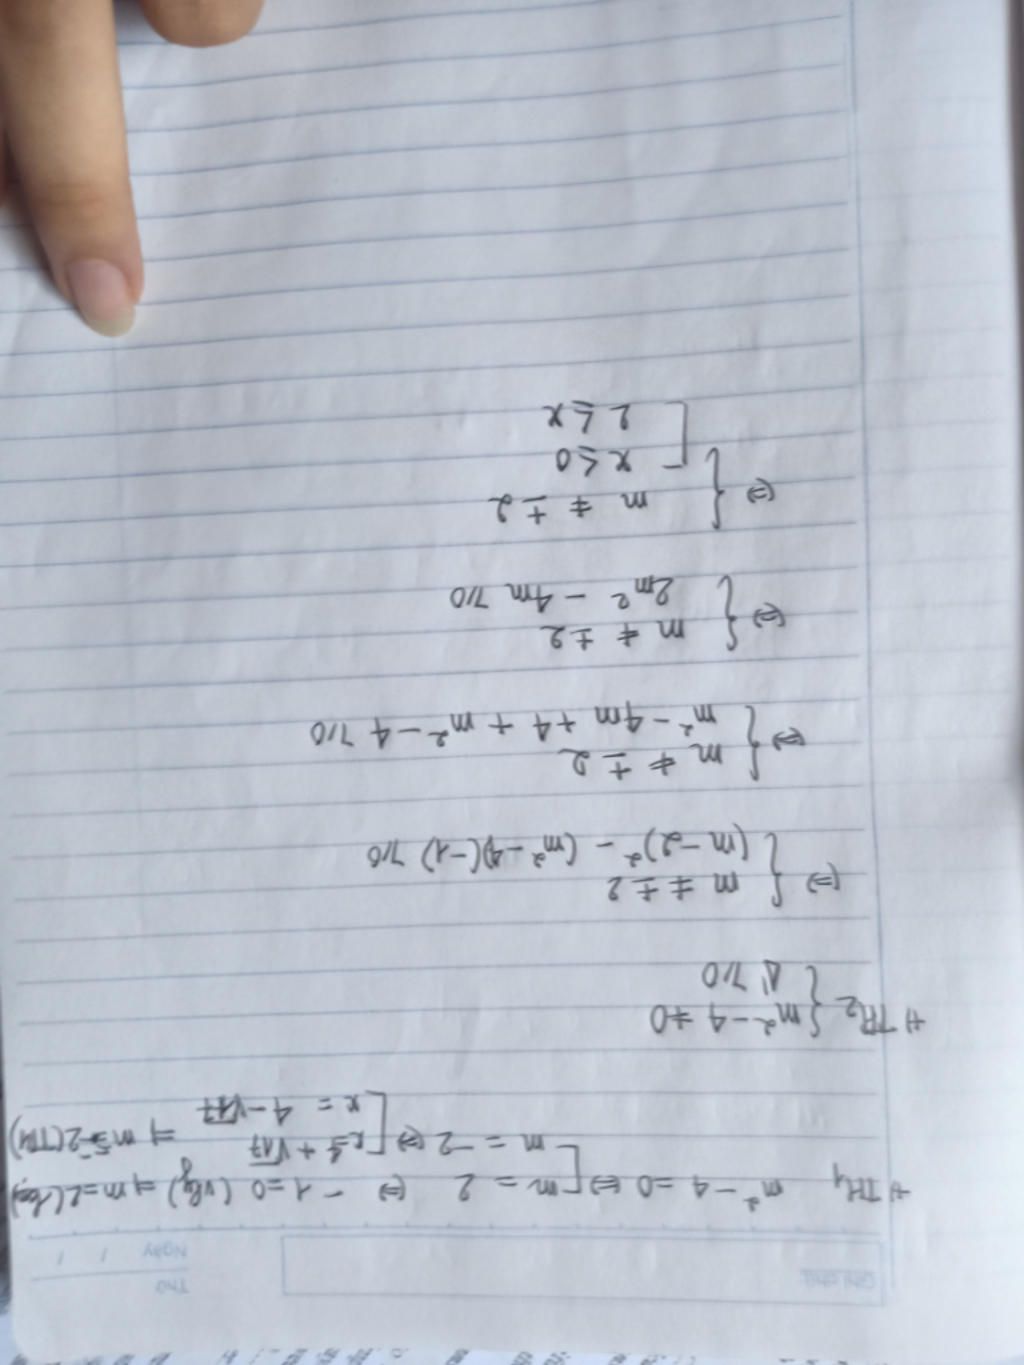 Ghi chú
Thứ
Ngày / /
+ TH1 m² - 4 = 0 ⇔ [ m = 2 ⇔ -1 = 0 (vlý) ⇒ m = 2 (loại)
m = -2 ⇔ [ x = 4 + √17
x = 4 - √17 ⇒ m = -2 (TM)
+ TH2 { m² - 4 ≠ 0
Δ' ⩾ 0
⇔ { m ≠ ± 2
(m - 2)² - (m² - 4)(-1) ⩾ 0
⇔ { m ≠ ± 2
m² - 4m + 4 + m² - 4 ⩾ 0
⇔ { m ≠ ± 2
2m² - 4m ⩾ 0
⇔ { m ≠ ± 2
[ x ≤ 0
2 ≤ x